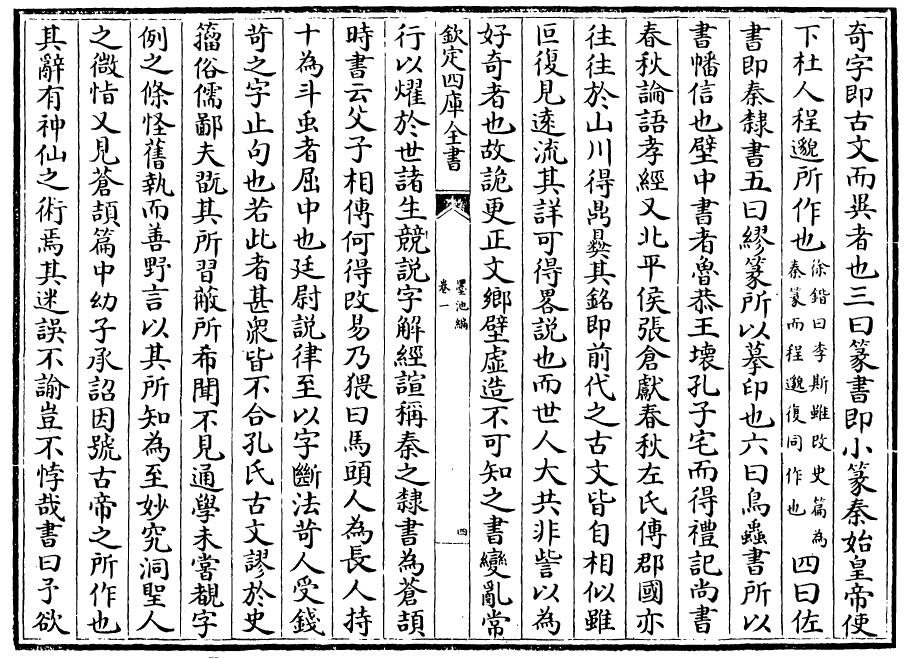 奇字即古文而異者也三曰篆書即小篆秦始皇帝使
下杜人程邈所作也徐鍇曰李斯雖改史篇為秦篆而程邈復同作也四曰佐
書即秦隸書五曰繆篆所以摹印也六曰鳥蟲書所以
書幡信也壁中書者魯恭王壞孔子宅而得禮記尚書
春秋論語孝經又北平侯張倉獻春秋左氏傳郡國亦
往往於山川得鼎彛其銘即前代之古文皆自相似雖
叵復見逺流其詳可得畧説也而世人大共非訾以為
好奇者也故詭更正文鄉壁虛造不可知之書變亂常
欽定四庫全書 墨池編 卷一 四
行以燿於世諸生競説字解經諠稱秦之隸書為蒼頡
時書云父子相傳何得改易乃猥曰馬頭人為長人持
十為斗虫者屈中也廷尉説律至以字斷法苛人受錢
苛之字止句也若此者甚衆皆不合孔氏古文謬於史
籀俗儒鄙夫翫其所習蔽所希聞不見通學未嘗覩字
例之條怪舊執而善野言以其所知為至妙究洞聖人
之微恉又見蒼頡篇中幼子承詔因號古帝之所作也
其辭有神仙之術焉其迷誤不諭豈不悖哉書曰予欲